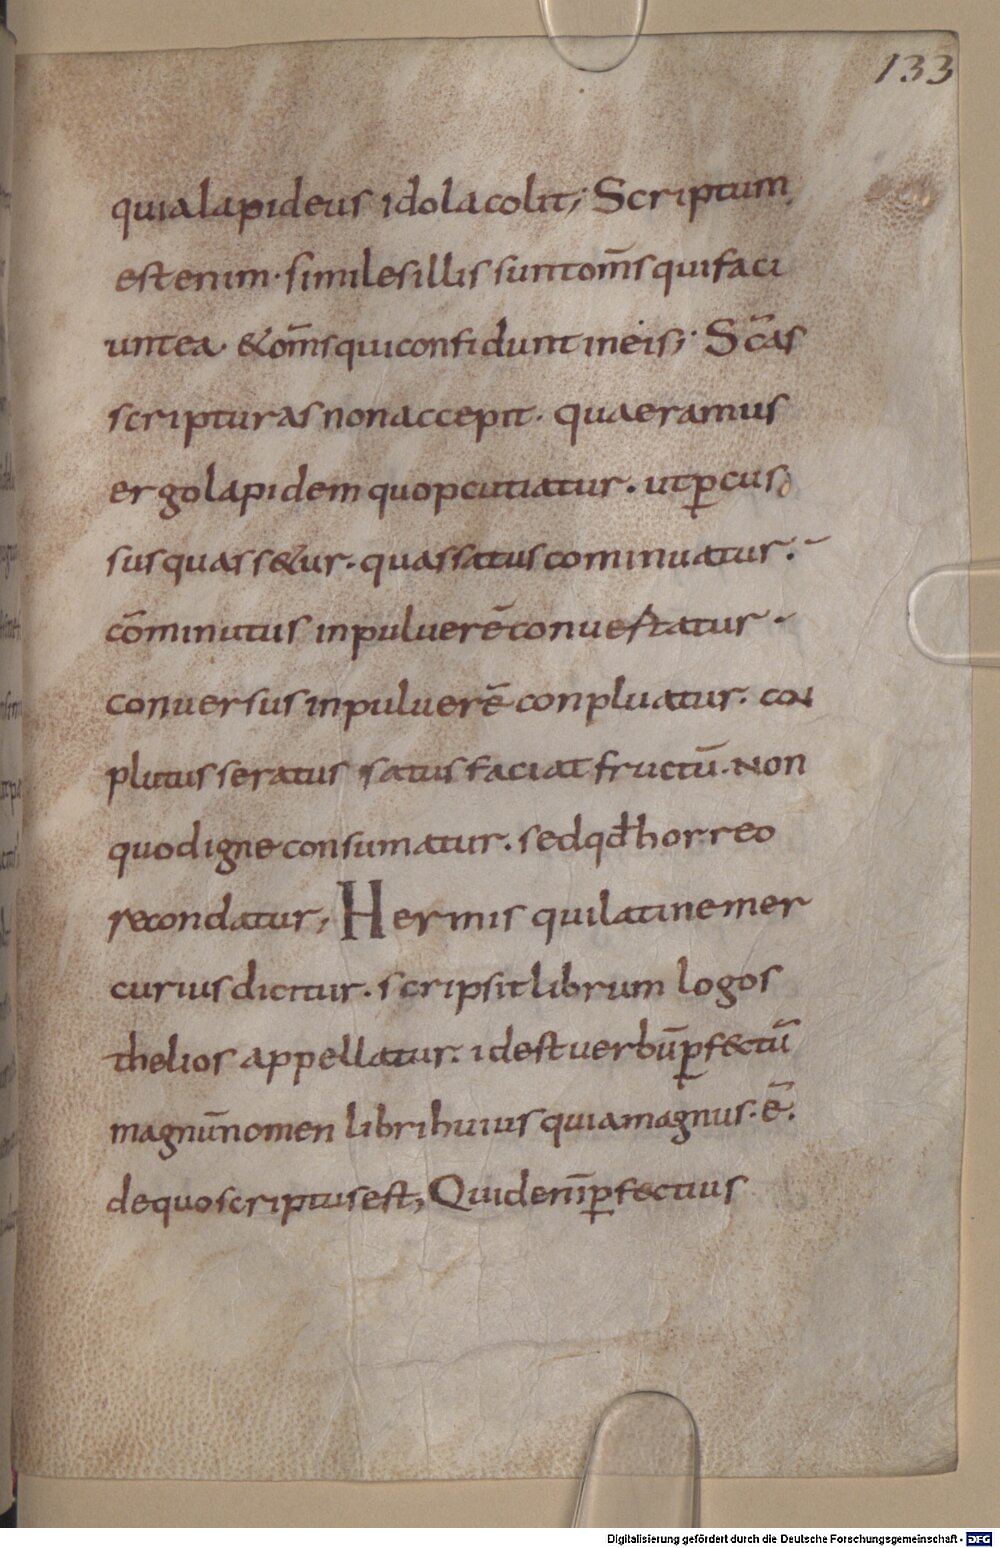 133
quialapideus idolacolit; Scriptum
estenim· similesillis suntom̄s quifaci
untea· &om̄squiconfidunt ineis; Sc̄as
scripturas nonaccepit· quaeramus
ergolapidem quopcutiatur. utꝑcus
susquass&ur. quassatus cominuatur.
cōminutus inpulverē convertatur.
conversus inpulverē conpluatur. con
plutus seratus satus faciat fructū. Non
quodignecon sumatur. sedqđ horreo
recondatur, Hermis quilatine mer
curius dicitur. scripsit librum logos
thelios appellatur. idest verbū ꝑfectū
magnū nomen libri huius quia magnus. ē.
dequo scriptus est, Quidenī ꝑfectius
Digitalisierung gefördert durch die Deutsche Forschungsgemeinschaft - DFG